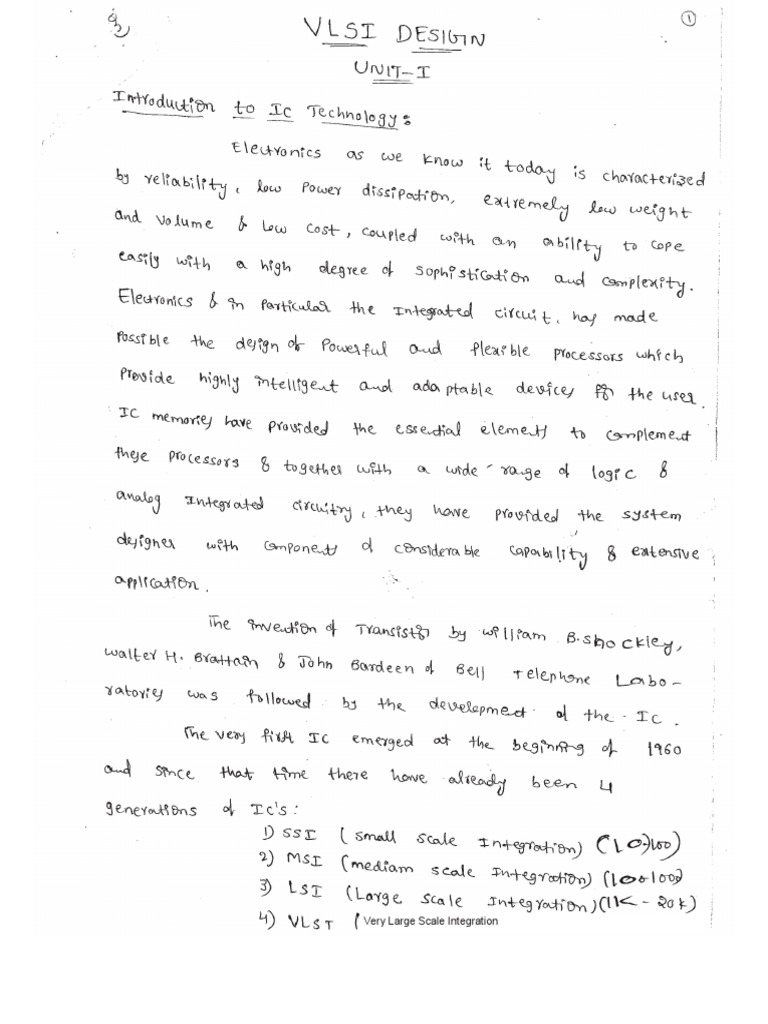 ①
VLSI DESIGN
UNIT-I
Introduction to IC Technology:
Electronics as we know it today is characterized
by reliability, low power dissipation, extremely low weight
and volume & low cost, coupled with an ability to cope
easily with a high degree of sophistication and complexity.
Electronics & in particular the Integrated circuit, has made
possible the design of powerful and flexible processors which
provide highly intelligent and adaptable devices for the user.
IC memories have provided the essential elements to complement
these processors & together with a wide range of logic &
analog integrated circuitry, they have provided the system
designer with components of considerable capability & extensive
application.
The invention of Transistor by william B.shockley,
walter H. Brattain & John Bardeen of Bell Telephone Labo-
ratories was followed by the development of the IC.
The very first IC emerged at the beginning of 1960
and since that time there have already been 4
generations of IC's:
1) SSI (small scale Integration) (10-100)
2) MSI (mediam scale Integration) (100-1000)
3) LSI (Large scale Integration) (1K - 20K)
4) VLSI (Very Large Scale Integration